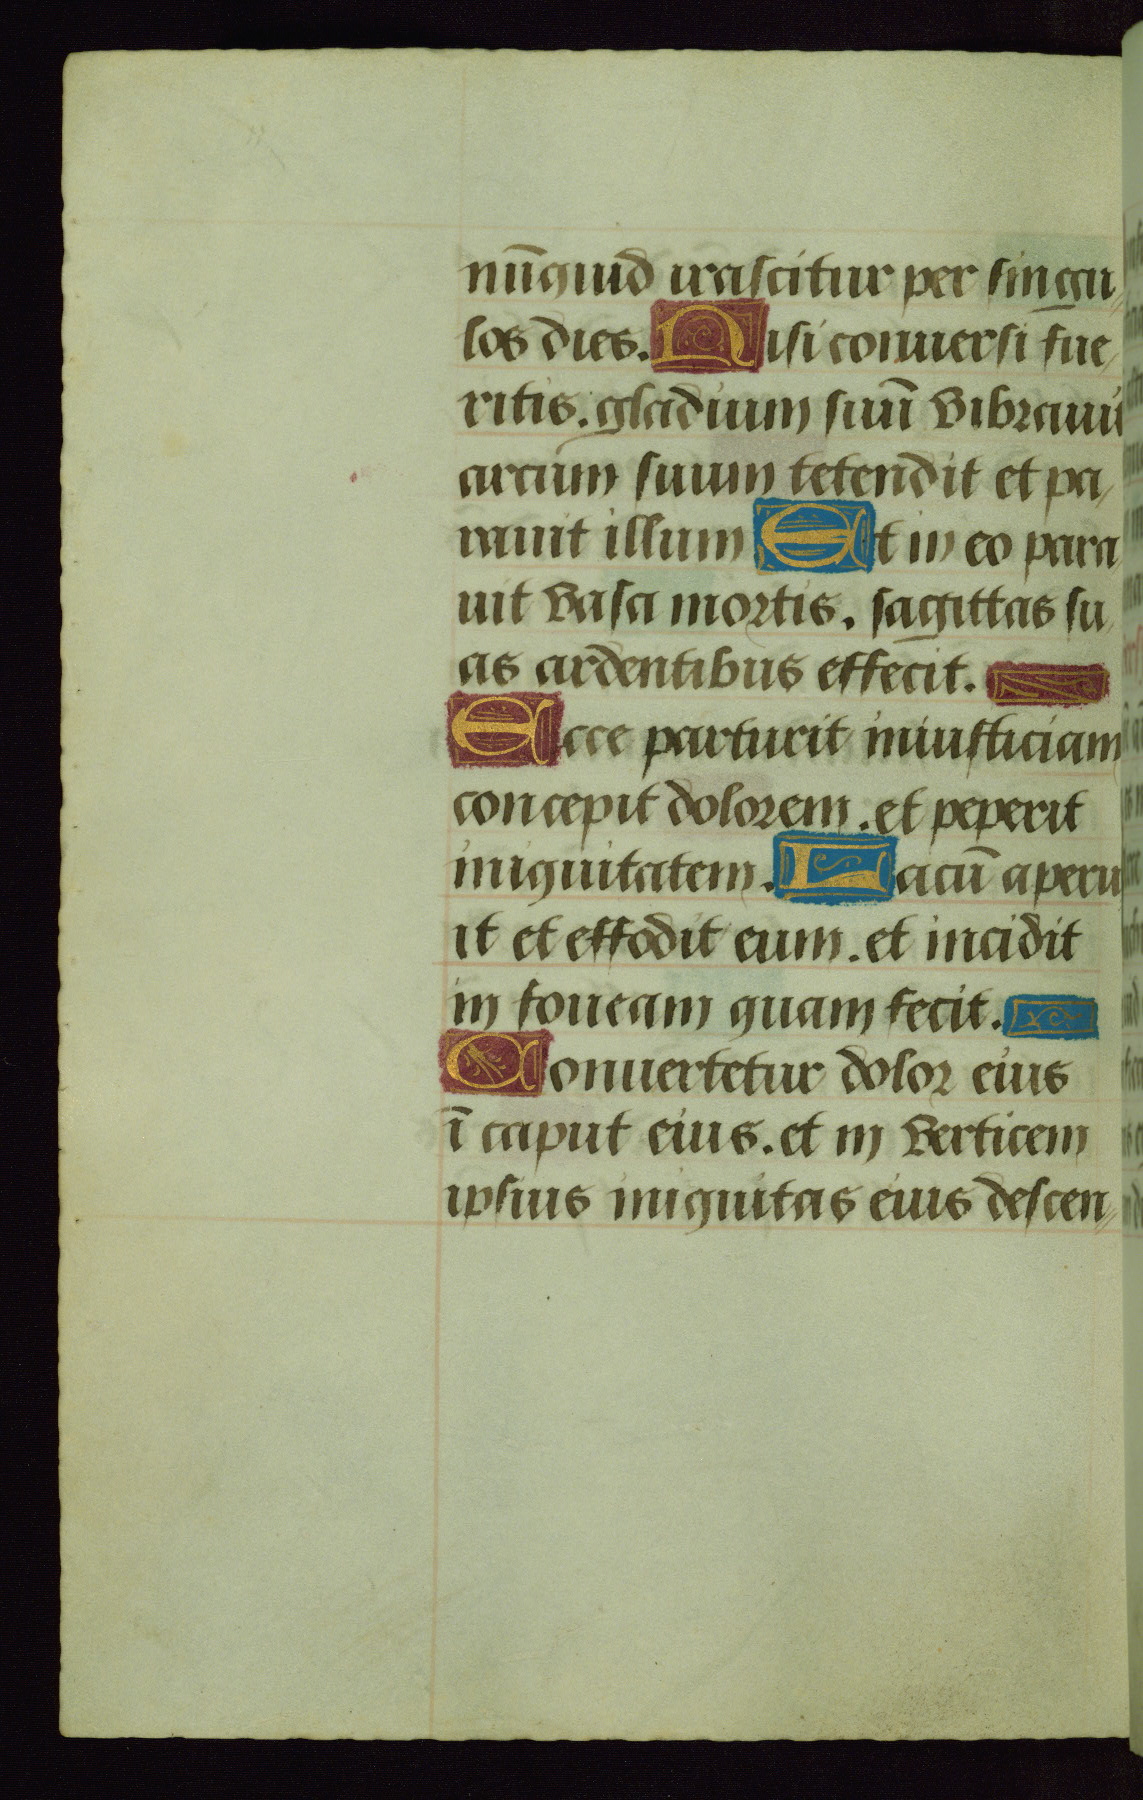 nūquid irascitur per singu
los dies. Nisi conuersi fue
ritis. gladium suū vibrauit
arcum suum tetendit et pa
rauit illum Et in eo para
uit vasa mortis. sagittas su
as ardentibus effecit.
Ecce parturit iniusticiam
concepit dolorem. et peperit
iniquitatem. Lacū aperu
it et effodit eum. et incidit
in foueam quam fecit.
Conuertetur dolor eius
ī caput eius. et in verticem
ipsius iniquitas eius descen